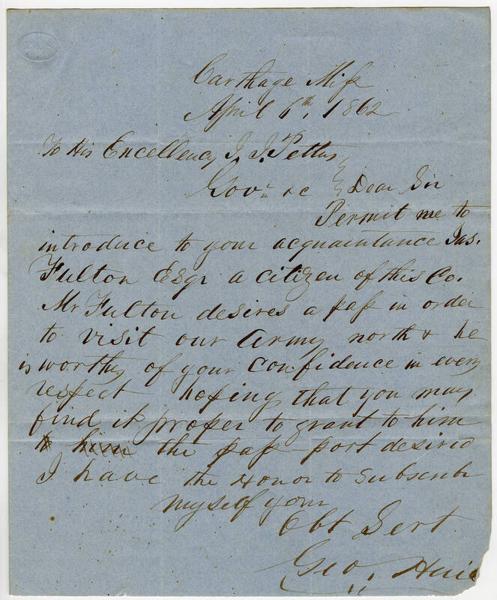 Carthage Miss
April 6th, 1862
To His Excellency J. J. Pettus
Govr &c Dear Sir
Permit me to
introduce to your acquaintance Jas.
Fulton Esqr a citizen of this Co.
Mr Fulton desires a pass in order
to visit our Army north & he
is worthy of your confidence in every
respect hoping that you may
find it proper to grant to him
the pass port desired
I have the Honor to Subscribe
myself your
Obt Servt
Geo Huie